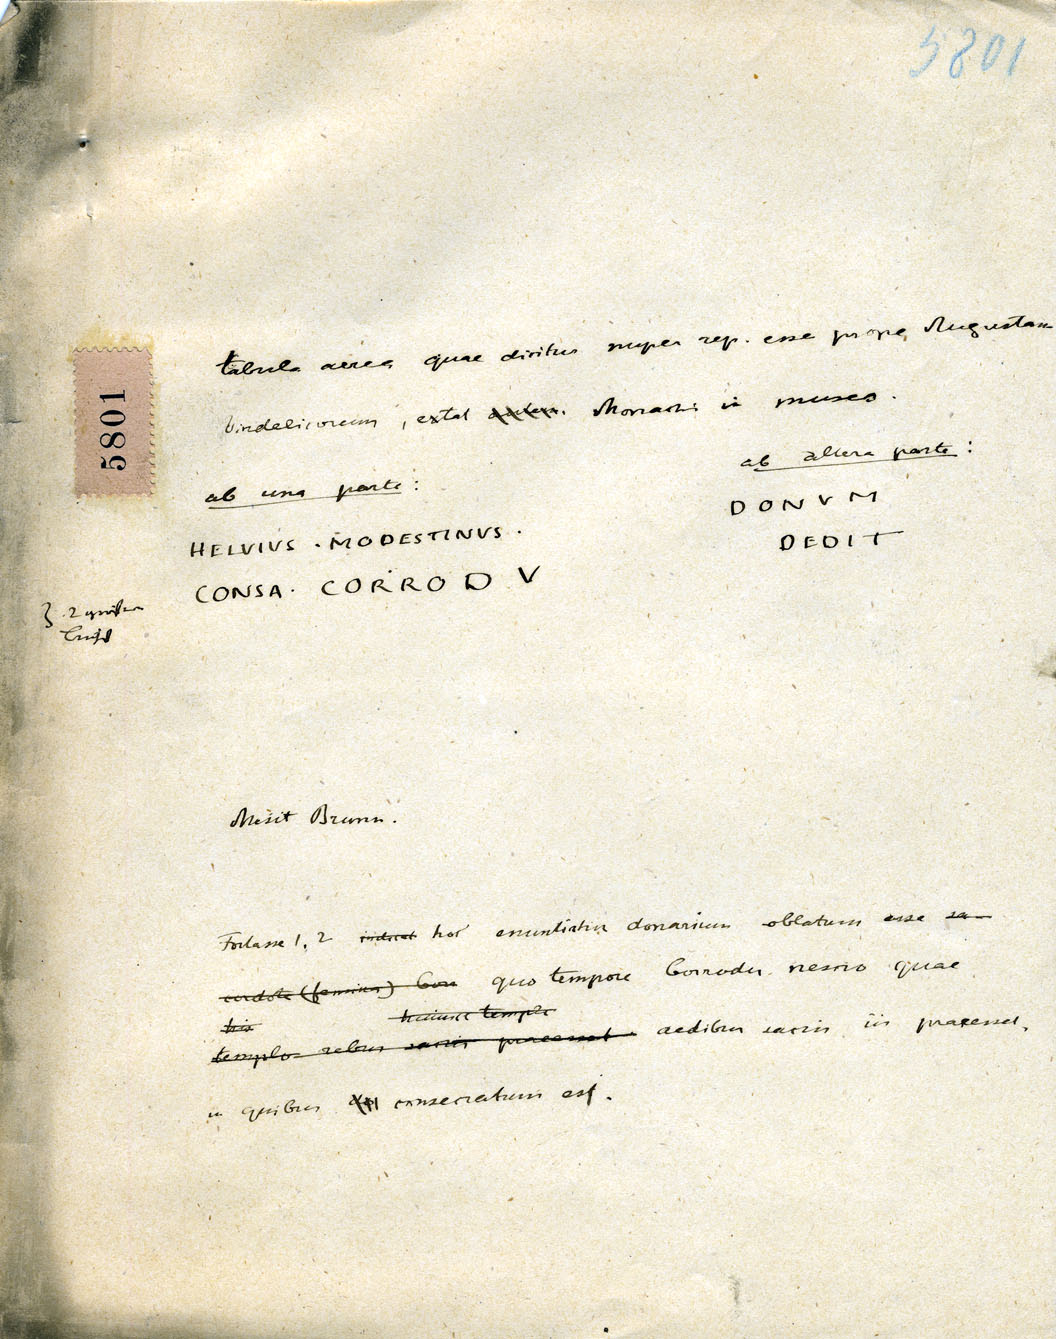 5801
tabula aerea quae dicitur nuper rep. esse prope Augustam
Vindelicorum, extat autem Monachii in museo.
5801
ab una parte:
ab altera parte:
HELVIVS · MODESTINVS ·
DONVM
CONSA · CORRODV
DEDIT
Misit Brunn.
Fortasse 1, 2 indicat hoc enuntiatur donarium oblatum esse sa-
cerdote (femina) Corr quo tempore Corrodu nescio quae
his huiusce templi
templo rebus sacris praeesset aedibus sacris iis praeesset,
in quibus consecratum est.